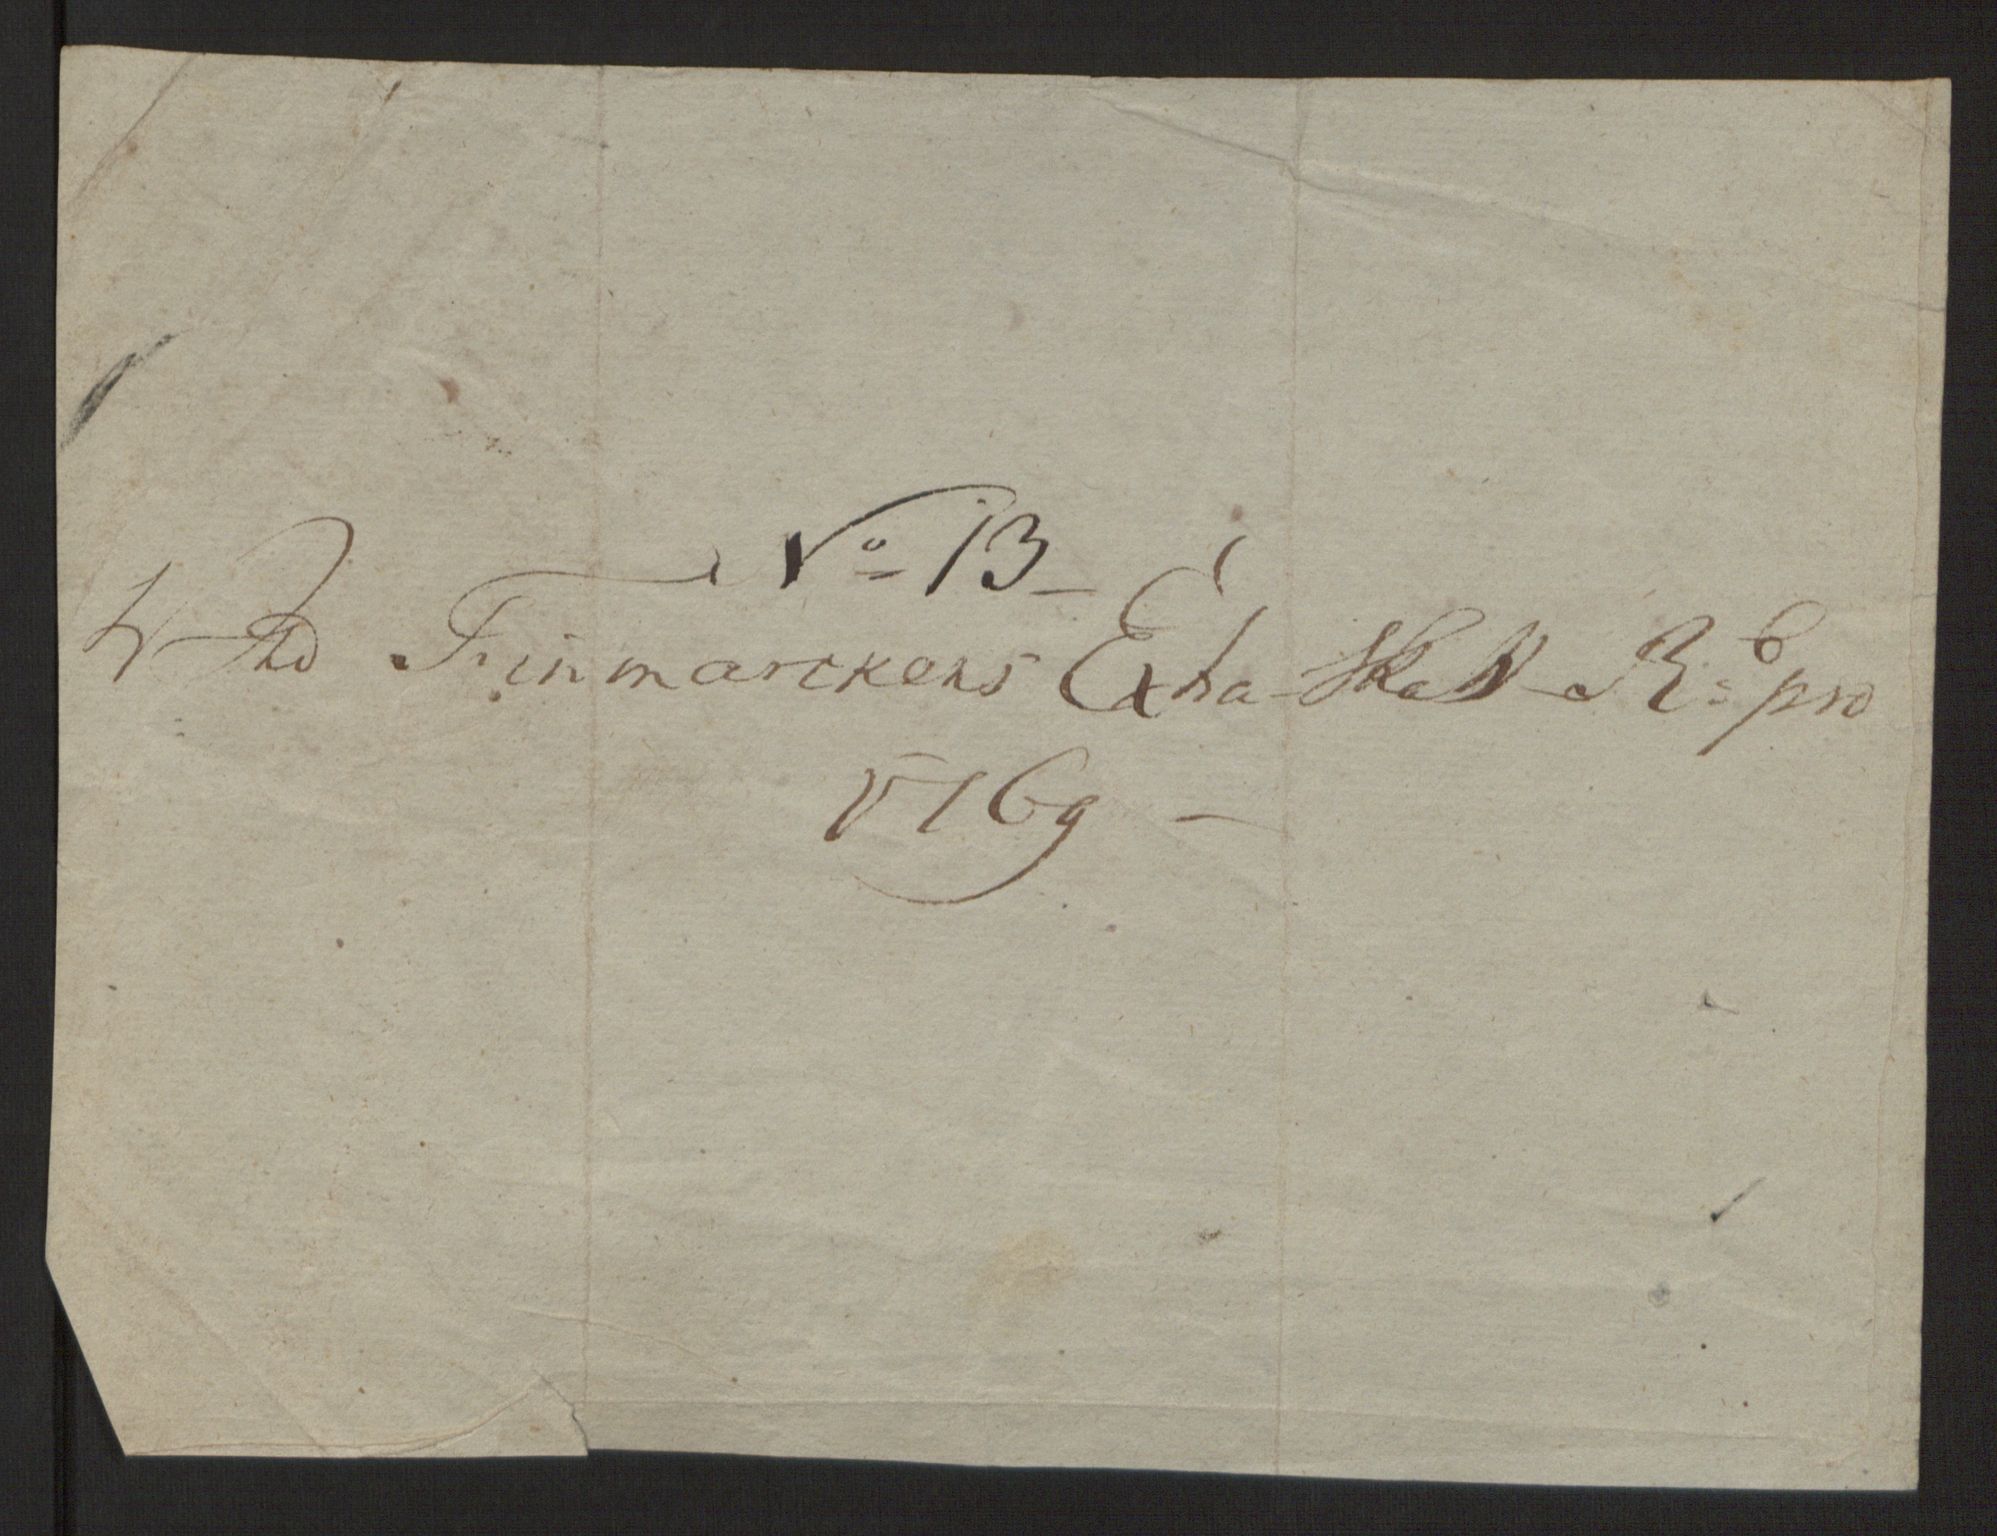 No 13
Ad Finmarckens Extra Skatt R: pro
1769